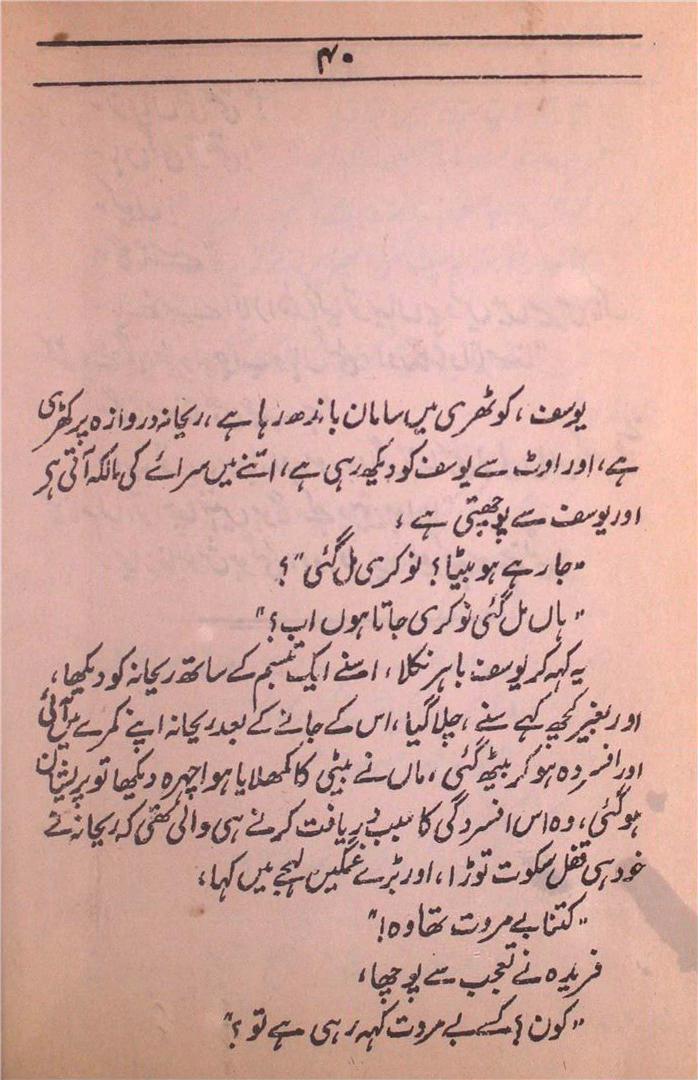 ۴۰
یوسف، کوٹھری میں سامان باندھ رہا ہے، ریحانہ دروازہ پر کھڑی
ہے، اور اوٹ سے یوسف کو دیکھ رہی ہے، اتنے میں سرائے کی مالکہ آتی ہے
اور یوسف سے پوچھتی ہے،
"جا رہے ہو بیٹا؟ نوکری مل گئی"؟
"ہاں مل گئی نوکری جاتا ہوں اب؟"
یہ کہہ کر یوسف باہر نکلا، اسنے ایک تبسم کے ساتھ ریحانہ کو دیکھا،
اور بغیر کچھ کہے سنے، چلا گیا، اس کے جانے کے بعد ریحانہ اپنے کمرے میں آئی
اور افسردہ ہو کر بیٹھ گئی، ماں نے بیٹی کا کمھلایا ہوا چہرہ دیکھا تو پریشان
ہو گئی، وہ اس افسردگی کا سبب دریافت کرنے ہی والی تھی کہ ریحانہ نے
خود ہی قفل سکوت توڑا، اور بڑے غمگین لہجے میں کہا،
"کتنا بے مروت تھا وہ!"
فریدہ نے تعجب سے پوچھا،
"کون؟ کسے بے مروت کہہ رہی ہے تو؟"